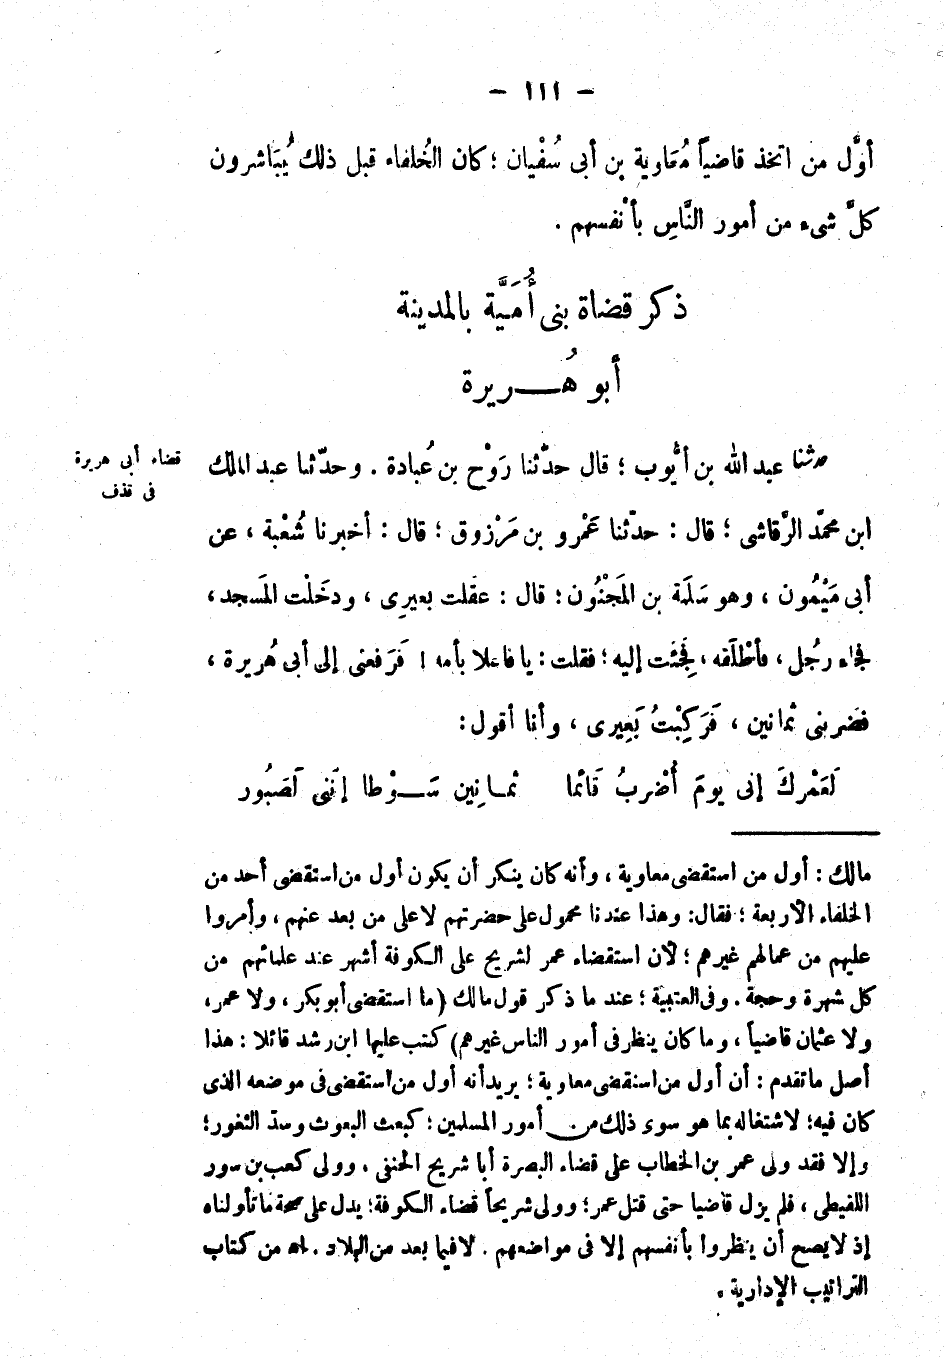 — ١١١ —
أوَّل من اتخذ قاضياً مُعَاوية بن أبى سُفْيان ؛ كان الخُلفاء قبل ذلك يُبَاشرون
كلَّ شىء من أمور النَّاسِ بأَنْفسهم .
ذكر قضاة بنى أُمَيَّة بالمدينة
أبو هُـــريرة
حدثنا عبد الله بن أيُّوب ؛ قال حدّثنا رَوْح بن عُبادة . وحدّثنا عبد الملك
قضاء أبى هريرة
فى قذف
ابن محمّد الرَّقاشى ؛ قال : حدّثنا عَمْرو بن مَرْزوق ؛ قال : أخبرنا شُعْبة ، عن
أبى مَيْمُون ، وهو سَلَمَة بن المَجْنُون ؛ قال : عقلت بعيرِى ، ودخَلْت المَسجد ،
فجاء رجُل ، فأطْلَقه ، فجِئت إليه ؛ فقلت : يا فاعلا بأمه ! فَرفعنى إلى أبى هُريرة ،
فضَربنى ثمانين ، فَرَكِبْتُ بَعِيرى ، وأنا أقول :
لَعَمْركَ إنى يومَ أُضْربُ قَائما ثمـانِين سَـــوْطا إنَّنى لَصَبُور
مالك : أول من استقضى معاوية ، وأنه كان ينكر أن يكون أول من استقضى أحد من
الخلفاء الأربعة ؛ فقال : وهذا عندنا محمول على حضرتهم لا على من بعد عنهم ، وأمروا
عليهم من عمالهم غيرهم ؛ لأن استقضاء عمر لشريح على الكوفة أشهر عند علمائهم من
كل شهرة وحجة . وفى العتبية ؛ عند ما ذكر قول مالك (ما استقضى أبو بكر ، ولا عمر ،
ولا عثمان قاضياً ، وما كان ينظر فى أمور الناس غيرهم) كتب عليها ابن رشد قائلا : هذا
أصل ما تقدم : أن أول من استقضى معاوية ؛ يريد أنه أول من استقضى فى موضعه الذى
كان فيه ؛ لاشتغاله بما هو سوى ذلك من أمور المسلمين ؛ كبعث البعوث وسد الثغور ؛
وإلا فقد ولى عمر بن الخطاب على قضاء البصرة أبا شريح الحنفى ، وولى كعب بن سور
اللقيطى ، فلم يزل قاضيا حتى قتل عمر ؛ وولى شريحاً قضاء الكوفة ؛ يدل على صحة ما تأولناه
إذ لا يصح أن ينظروا بأنفسهم إلا فى مواضعهم . لا فيما بعد من البلاد . اه من كتاب
التراتيب الإدارية .